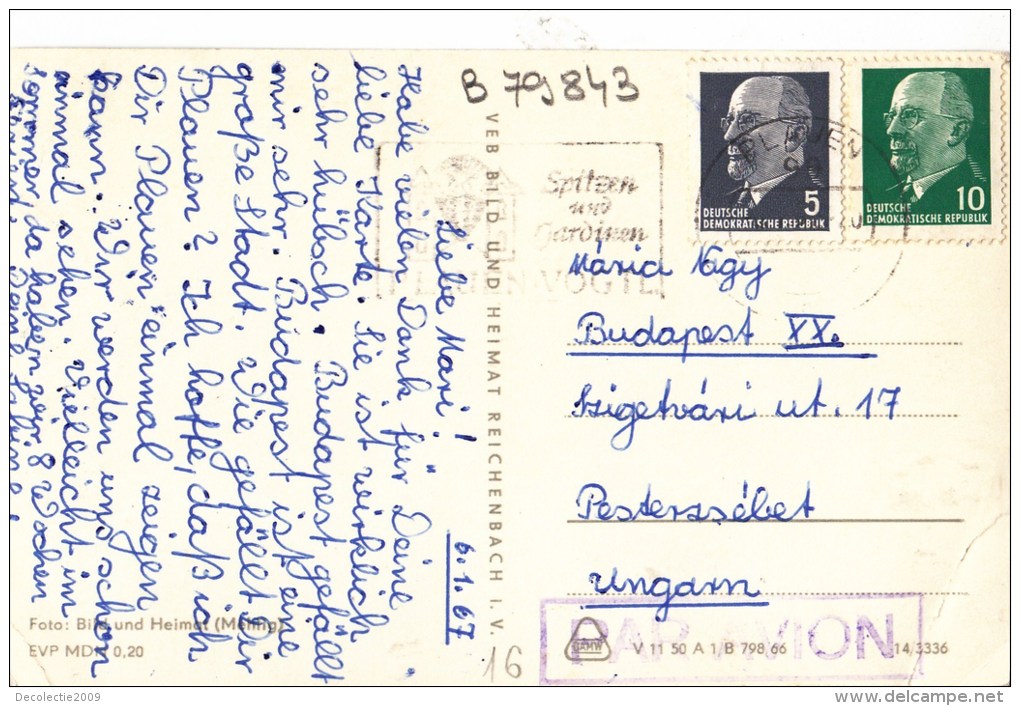 B 79843
Spitzen
und
Gardinen
PLAUEN VOGTL
PLAUEN
5
DEUTSCHE
DEMOKRATISCHE REPUBLIK
10
DEUTSCHE
DEMOKRATISCHE REPUBLIK
6.1.67
Liebe Maxi!
Habe vielen Dank für Deine
liebe Karte. Sie ist wirklich
sehr hübsch. Budapest gefällt
mir sehr. Budapest ist eine
große Stadt. Wie gefällt Dir
Plauen? Ich hoffe, daß ich
Dir Plauen einmal zeigen
kann. Wir werden uns schon
einmal sehen. Vielleicht im
Sommer, da haben wir 8 Wochen
VEB BILD UND HEIMAT REICHENBACH I. V.
Mária Nagy
Budapest XX.
Szigetvári ut. 17
Pesterzsébet
Ungarn
PAR AVION
Foto: Bild und Heimat (Mehnig)
EVP MDN 0,20
16
V 11 50 A 1/B 798 66
14/3336
Decolectie2009
www.delcampe.net